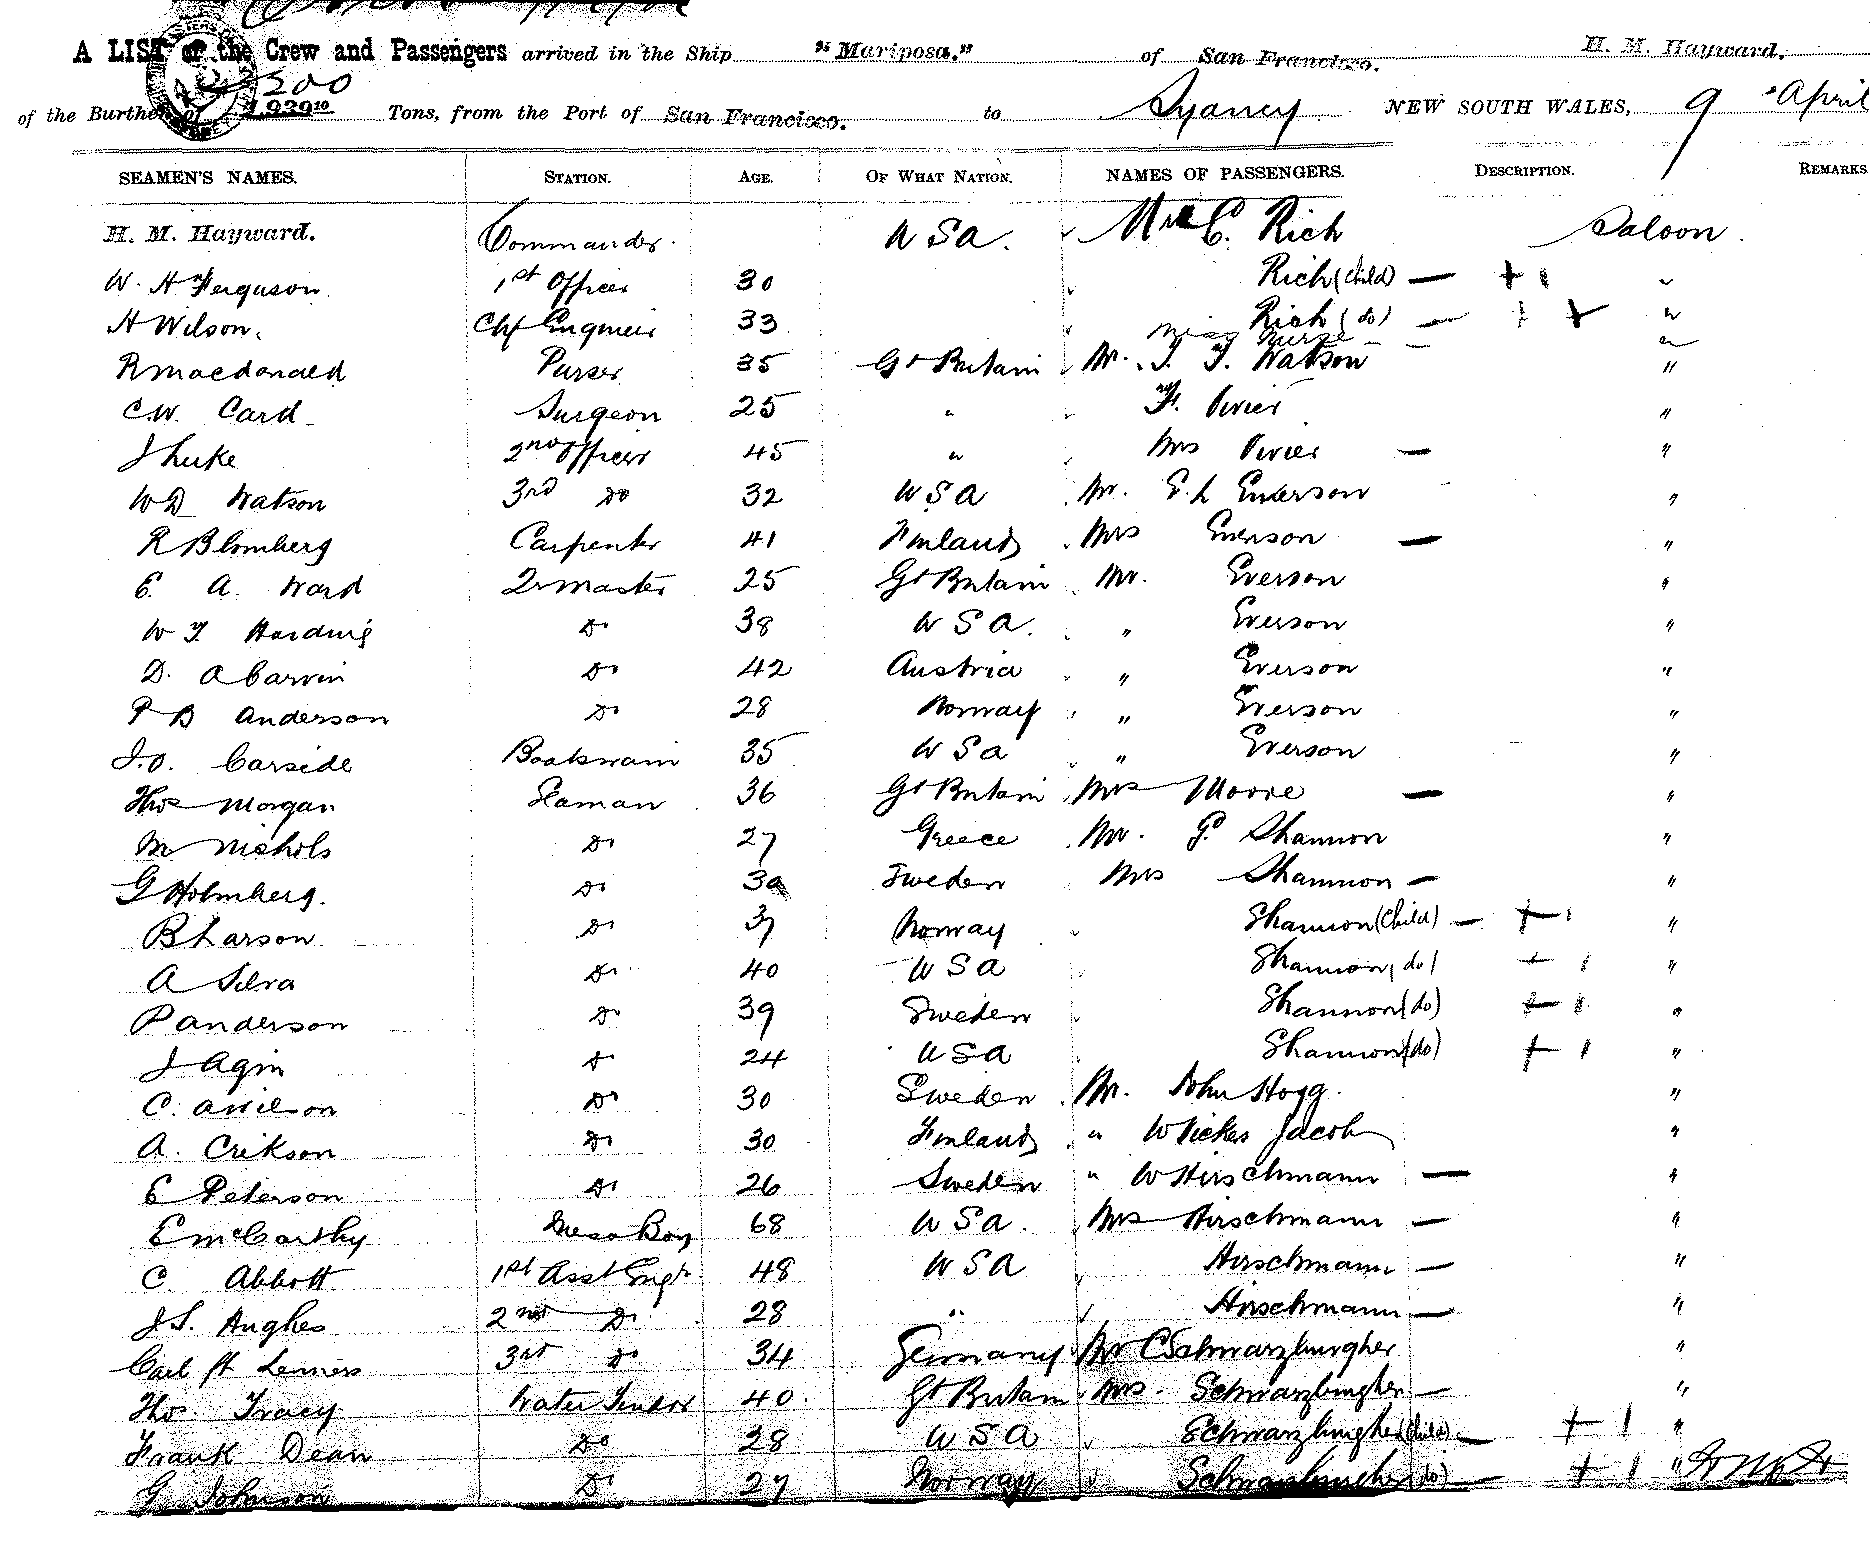 A LIST of the Crew and Passengers arrived in the Ship "Mariposa." of San Francisco. H. M. Hayward.
of the Burthen of 1,939 10 Tons, from the Port of San Francisco. to Sydney NEW SOUTH WALES, 9 April
SEAMEN'S NAMES. STATION. AGE. OF WHAT NATION. NAMES OF PASSENGERS. DESCRIPTION. REMARKS
H. M. Hayward. Commander. U S A. Mrs C. Rich Saloon.
W. H Ferguson 1st Officer 30 Rich (Child) — + 1 "
H Wilson. Chf Engineer 33 Rich (do) — + + "
Miss Nurse — "
R Macdonald Purser 35 Gt Britain Mr. T. Watson "
C.W. Card Surgeon 25 " F. Vivier "
J Luke 2nd Officer 45 " Mrs Vivier — "
W D Watson 3rd Do 32 U S A Mr. E. L Emerson "
R Blomberg Carpenter 41 Finland Mrs Everson — "
E. A. Ward Qr Master 25 Gt Britain Mr. Everson "
W T Harding Do 38 U S A. " Everson "
D. A Carvin Do 42 Austria " Everson "
P B Anderson Do 28 Norway " Everson "
J.O. Carside Boatswain 35 U S A " Everson "
Thos Morgan Seaman 36 Gt Britain Mrs Moore — "
M Nichols Do 27 Greece Mr. G. Shannon "
G Holmberg. Do Sweden Mrs Shannon — "
B Larson Do 37 Norway Shannon (Child) — + 1 "
A Silva Do 40 U S A Shannon (do) + 1 "
P Anderson Do 39 Sweden Shannon (do) + 1 "
J Agin Do 24 U S A Shannon (do) + 1 "
C. Do 30 Sweden Mr. John Hogg. "
A. Erikson Do 30 Finland " W Vickes Jacob "
E Peterson Do 26 Sweden " W Hirschmann — "
E McCarthy Mess Boy 68 U S A. Mrs Hirschmann — "
C. Abbott 1st Asst Engr 48 U S A Hirschmann — "
J S. Hughes 2nd Do 28 " Hirschmann — "
Carl H Lemers 3rd Do 34 Germany Mr C Schwarzburgher "
Thos Tracy Water Tender 40 Gt Britain Mrs. Schwarzburgher — "
Frank Dean Do 28 U S A Schwarzburgher (Child) — + 1 "
G Johnson Do 27 Norway Schwarzburgher (do) — + 1 "